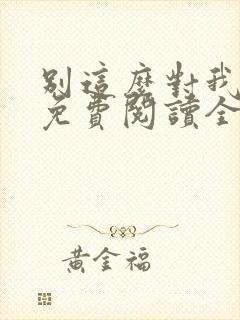 別這麼對我
免費閱讀全
黃金福